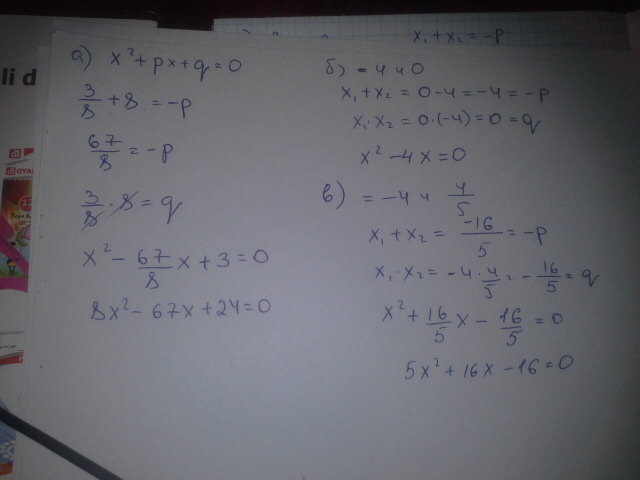 x₁ + x₂ = -p
а) x² + px + q = 0
3/8 + 8 = -p
67/8 = -p
3/8 · 8 = q
x² - 67/8 x + 3 = 0
8x² - 67x + 24 = 0
б) = -4 и 0
x₁ + x₂ = 0 - 4 = -4 = -p
x₁ · x₂ = 0 · (-4) = 0 = q
x² - 4x = 0
в) = -4 и 4/5
x₁ + x₂ = -16/5 = -p
x₁ · x₂ = -4 · 4/5 = - 16/5 = q
x² + 16/5 x - 16/5 = 0
5x² + 16x - 16 = 0
li d